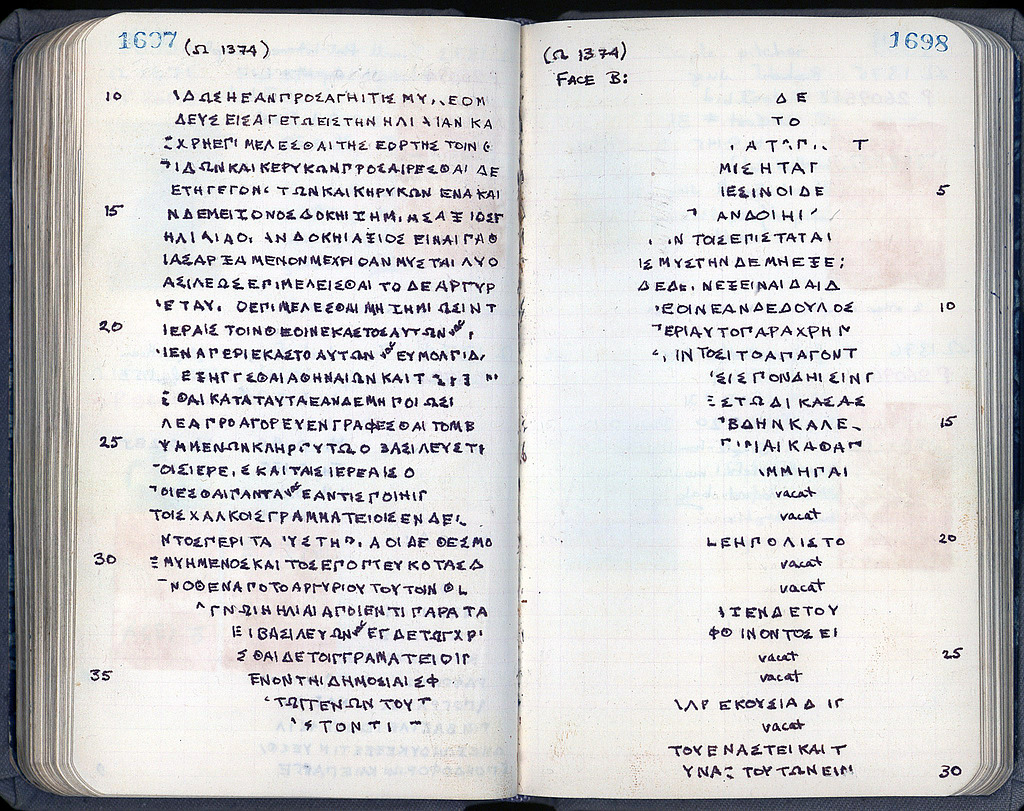 1697 (Ω 1374)
10 ΙΔΩΣΗΕΑΝΠΡΟΣΑΓΗΙΤΙΣ ΜΥ..ΕΟΜ
ΔΕΥΣ ΕΙΣΑΓΕΤΩΕΙΣΤΗΝ ΗΛΙΑΙΑΝ ΚΑ
ΣΧΡΗΕΠΙΜΕΛΕΣΘΑΙΤΗΣ ΕΟΡΤΗΣ ΤΟΙΝΘ
ΙΔΩΝΚΑΙΚΕΡΥΚΩΝΠΡΟΣΑΙΡΕΣΘΑΙ ΔΕ
ΕΤΗΓΕΓΟΝ ΤΩΝΚΑΙΚΗΡΥΚΩΝ ΕΝΑΚΑΙ
15 ΝΔΕΜΕΙΣΟΝΟΣΔΟΚΗΙ
ΔΟΚΗΙΑΞΙΟΣ ΕΙΝΑΙΠΑΘ
ΙΑΣΑΡΞΑΜΕΝΟΝΜΕΧΡΙΟΑΝΜΥΣΤΑΙΛΥΟ
ΑΣΙΛΕΩΣΕΠΙΜΕΛΕΙΣΘΑΙ ΤΟΔΕΑΡΓΥΡ
ΟΕΠΙΜΕΛΕΣΘΑΙ ΜΗΙΗΜΙΩΣΙΝΤ
20 ΙΕΡΑΙΣ ΤΟΙΝΘΕΟΙΝΕΚΑΣΤΟΣΑΥΤΩΝ vac
ΙΕΝΑΠΕΡΙΕΚΑΣΤΟΑΥΤΩΝ vac ΕΥΜΟΛΠΙΔ
ΕΞΗΓΓΣΘΑΙΑΘΗΝΑΙΩΝΚΑΙΤ
ΘΑΙΚΑΤΑΤΑΥΤΑΕΑΝΔΕΜΗΠΟΙΩΣΙ
ΛΕΑΠΡΟΑΓΟΡΕΥΕΝΓΡΑΦΕΣΘΑΙΤΟΜΒ
25 ΨΑΜΕΝΩΝΚΛΗΡΥΤΩΟΒΑΣΙΛΕΥΣΤΙ
ΟΙΣΙΕΡΕ.Σ ΚΑΙΤΑΙΣΙΕΡΕΑΙΣΟ
ΟΙΕΣΘΑΙΠΑΝΤΑ vac ΕΑΝΤΙΣΠΟΙΗΙΓ
ΤΟΙΣΧΑΛΚΟΙΣΓΡΑΜΜΑΤΕΙΟΙΣΕΝΔΕ
ΝΤΟΣΠΕΡΙΤΑ ΑΟΙΔΕΘΕΣΜΟ
30 ΞΜΥΗΜΕΝΟΣΚΑΙΤΟΣΕΠΟΠΤΕΥΚΟΤΑΣΔ
ΝΟΘΕΝΑΠΟΤΟΑΡΓΥΡΙΟΥΤΟΥΤΟΙΝΘ
ΓΝΩΙΗΗΛΙΑΙΑΠΟΙΕΝΤΙΠΑΡΑΤΑ
ΕΙΒΑΣΙΛΕΥΩΝ vac ΕΓΔΕΤΩΓΧΡΙ
ΣΘΑΙΔΕΤΟΙΓΓΡΑΜΑΤΕΙΟΙΓ
35 ΕΝΟΝΤΗΙΔΗΜΟΣΙΑΙΣΦ
ΤΩΓΓΕΝΩΝ ΤΟΥΤ
ΣΤΟΝΤΙ
1698
(Ω 1374)
FACE B:
ΔΕ
ΤΟ
ΜΙΣΗΤΑΓ
ΙΕΣΙΝΟΙΔΕ 5
ΑΝΔΟΙΗΙ
Ν ΤΟΙΣΕΠΙΣΤΑΤΑΙ
ΙΣ ΜΥΣΤΗΝ ΔΕΜΗΕΞΕ
ΔΕΔΕ.ΝΕΞΕΙΝΑΙΔΑΙΔ
ΕΟΙΝΕΑΝΔΕΔΟΥΛΟΣ 10
ΕΡΙΑΥΤΟΠΑΡΑΧΡΗΓ
ΙΝΤΟΣΙΤΟΑΠΑΓΟΝΤ
ΣΙΣΠΟΝΔΗΙΣΙΝΓ
ΕΣΤΩΔΙΚΑΣΑΣ
ΒΔΗΝΚΑΛΕ 15
ΑΙΚΑΘΑΓ
ΜΜΗΓΑΙ
vacat
vacat
ΕΗΠΟΛΙΣΤΟ 20
vacat
vacat
ΙΕΝΔΕΤΟΥ
ΦΘΙΝΟΝΤΟΣΕΙ
vacat 25
vacat
ΕΚΟΥΣΙΑΔ ΙΓ
vacat
ΤΟΥΕΝΑΣΤΕΙΚΑΙΤ
ΥΝΑΞΤΟΥΤΩΝΕΙΝ 30